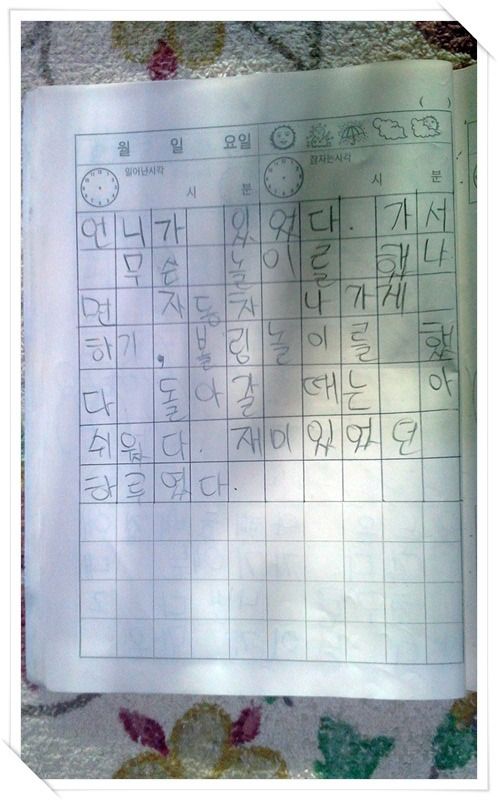 ( )
월 일 요일
일어난시각 잠자는시각
시 분 시 분
언니가 있었다. 가서
무슨 놀이를 했냐
면 자동차 나가게
하기, 블링놀이를 했
다. 돌아갈 때는 아
쉬웠다. 재미있었던
하루였다.